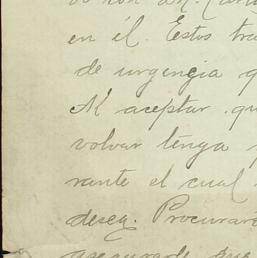 en él. Estos tra
de urgencia q
Al aceptar, qu
volver tenga
rante el cual
desea. Procurare
asegurado que